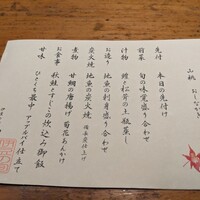 山桃 おしながき
先付 本日の先付
前菜 旬の味覚盛り合わせ
汁物 鱧と松茸の土瓶蒸し
お造り 地魚の刺身盛り合わせ
炭火焼 地魚の炭火焼
煮物 甘鯛の唐揚げ 菊花あんかけ
お食事 秋鮭とすじこの炊込み御飯
甘味 ひとくち最中 アップルパイ仕立て